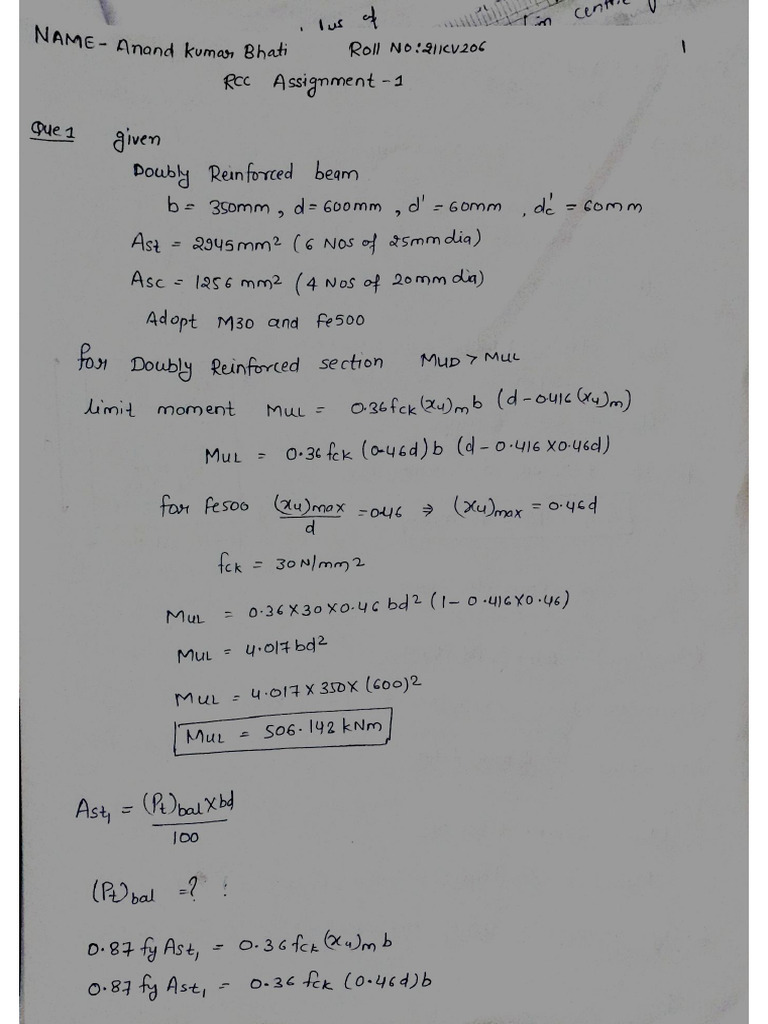 1us of
in centre
NAME- Anand Kumar Bhati Roll No:211CV206 1
RCC Assignment -1
Que 1 given
Doubly Reinforced beam
b = 350mm, d=600mm, d' = 60mm, dc' = 60mm
Ast = 2945mm2 (6 Nos of 25mm dia)
Asc = 1256 mm2 (4 Nos of 20mm dia)
Adopt M30 and Fe500
for Doubly Reinforced section MUD > MUL
limit moment MUL = 0.36fck(xu)m b (d-0.416(xu)m)
MUL = 0.36 fck (0.46d) b (d - 0.416 X0.46d)
for Fe500 (xu)max/d = 0.46 ⇒ (xu)max = 0.46d
fck = 30N/mm2
MUL = 0.36X30X0.46 bd2 (1- 0.416X0.46)
MUL = 4.017bd2
MUL = 4.017 X 350X (600)2
MUL = 506.142 kNm
Ast1 = (Pt)bal X bd/100
(Pt)bal =?
0.87 fy Ast1 = 0.36 fck (xu)m b
0.87 fy Ast1 = 0.36 fck (0.46d)b